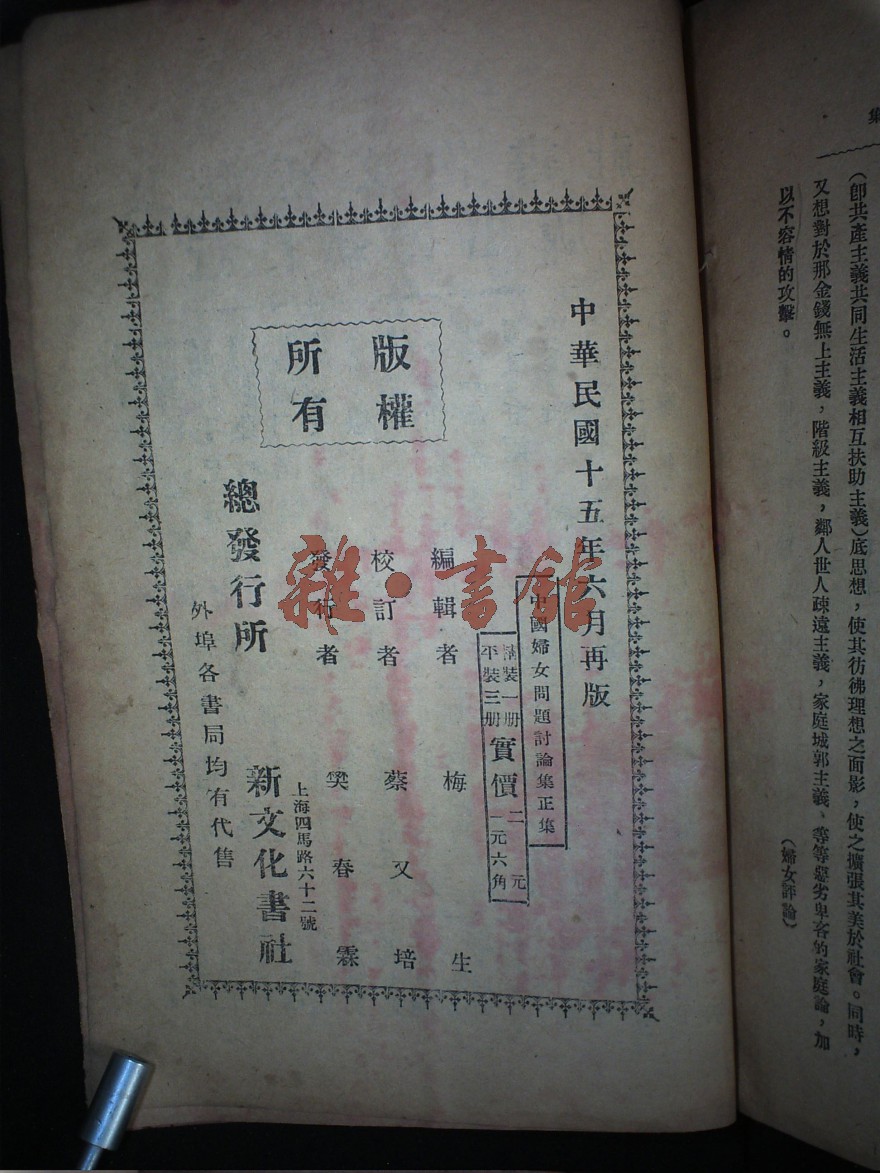 集
(卽共產主義共同生活主義相互扶助主義)底思想，使其彷彿理想之面影，使之擴張其美於社會。同時，
又想對於那金錢無上主義，階級主義，鄰人世人疎遠主義，家庭城郭主義、等等惡劣卑吝的家庭論，加
以不容情的攻擊。
(婦女評論)
中華民國十五年六月再版
中國婦女問題討論集正集
裝一册 二元
平裝三册 一元六角
實價
編輯者 梅生
校訂者 蔡又培
發行者 樊春霖
版權
所有
總發行所
上海四馬路六十二號
新文化書社
外埠各書局均有代售
雜·書館